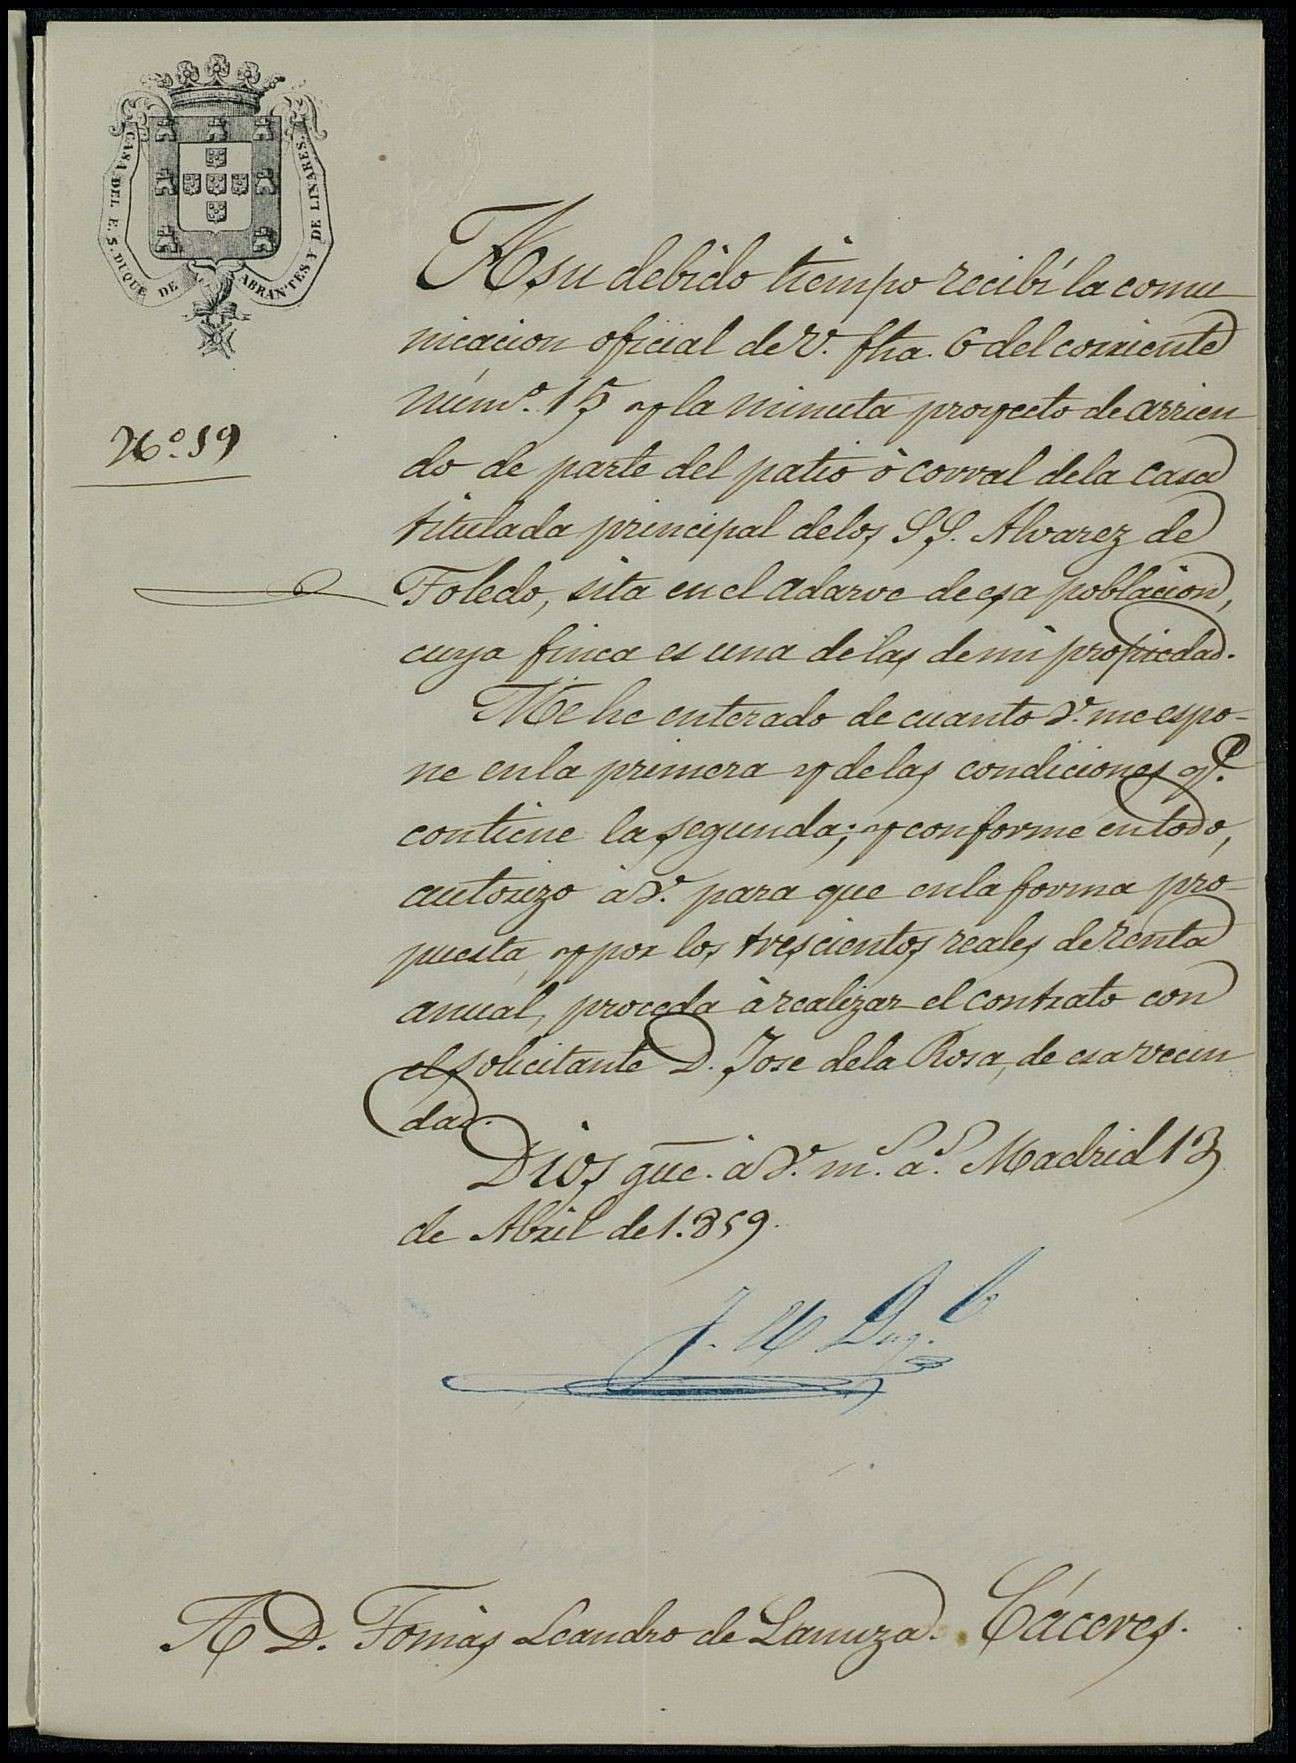 CASA DEL E. S. DUQUE DE ABRANTES Y DE LINARES.
Nº. 59
A su debido tiempo recibí la comu
nicacion oficial de V. fha. 6 del corriente
númº. 15 y la minuta proyecto de arrien
do de parte del patio ò corral de la casa
titulada principal de los SS. Alvarez de
Toledo, sita en el adarve de esa poblacion,
cuya finca es una de las de mi propiedad.
Me he enterado de cuanto V. me espo-
ne en la primera y de las condiciones qe.
contiene la segunda; y conforme en todo,
autorizo à V. para que en la forma pro-
puesta y por los trescientos reales de renta
anual, proceda à realizar el contrato con
el solicitante D. Jose de la Rosa, de esa vecin
dad.
Dios gue. à V. ms. as. Madrid 13
de Abril de 1.859.
A D. Tomàs Leandro de Lanuza. Cáceres.